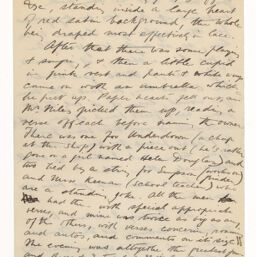 standing inside a large heart
of red satin background, the whole
being draped most effectively in lace.
After that there was some playing
& songs, & then a little cupid
in pink vest and pants & white wings
came in with an umbrella, which
he put up. Paper hearts
Mr. Niles picked them up, read a
verse off each before naming the owner.
There was one for Underdown (a chap
at the shop) with a piece out (he's rather
gone on a girl named Helen Douglas) and
two tied by a string for Simpson
and Miss Keenan (school teacher) who
are a standing joke. All the men
had them with special appropriate
verses, and mine was twice as big as any
of the others, with verses concerning
and actors, and comments on its size
The evening was altogether the greatest fun